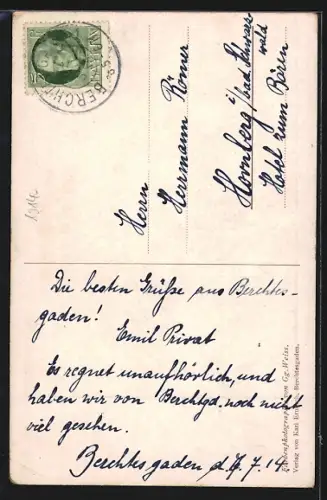 BERCHT
1914
Herrn
Herrmann Römer
Hornberg i/bad. Schwarz
wald
Hotel zum Bären
Die besten Grüße aus Berchtes-
gaden!
Emil Privat
Es regnet unaufhörlich, und
haben wir von Berchtgd. noch nicht
viel gesehen.
Berchtesgaden d. 7.14
Farbenphotographie von Gg. Weisz.
Verlag von Karl Berchtesgaden.